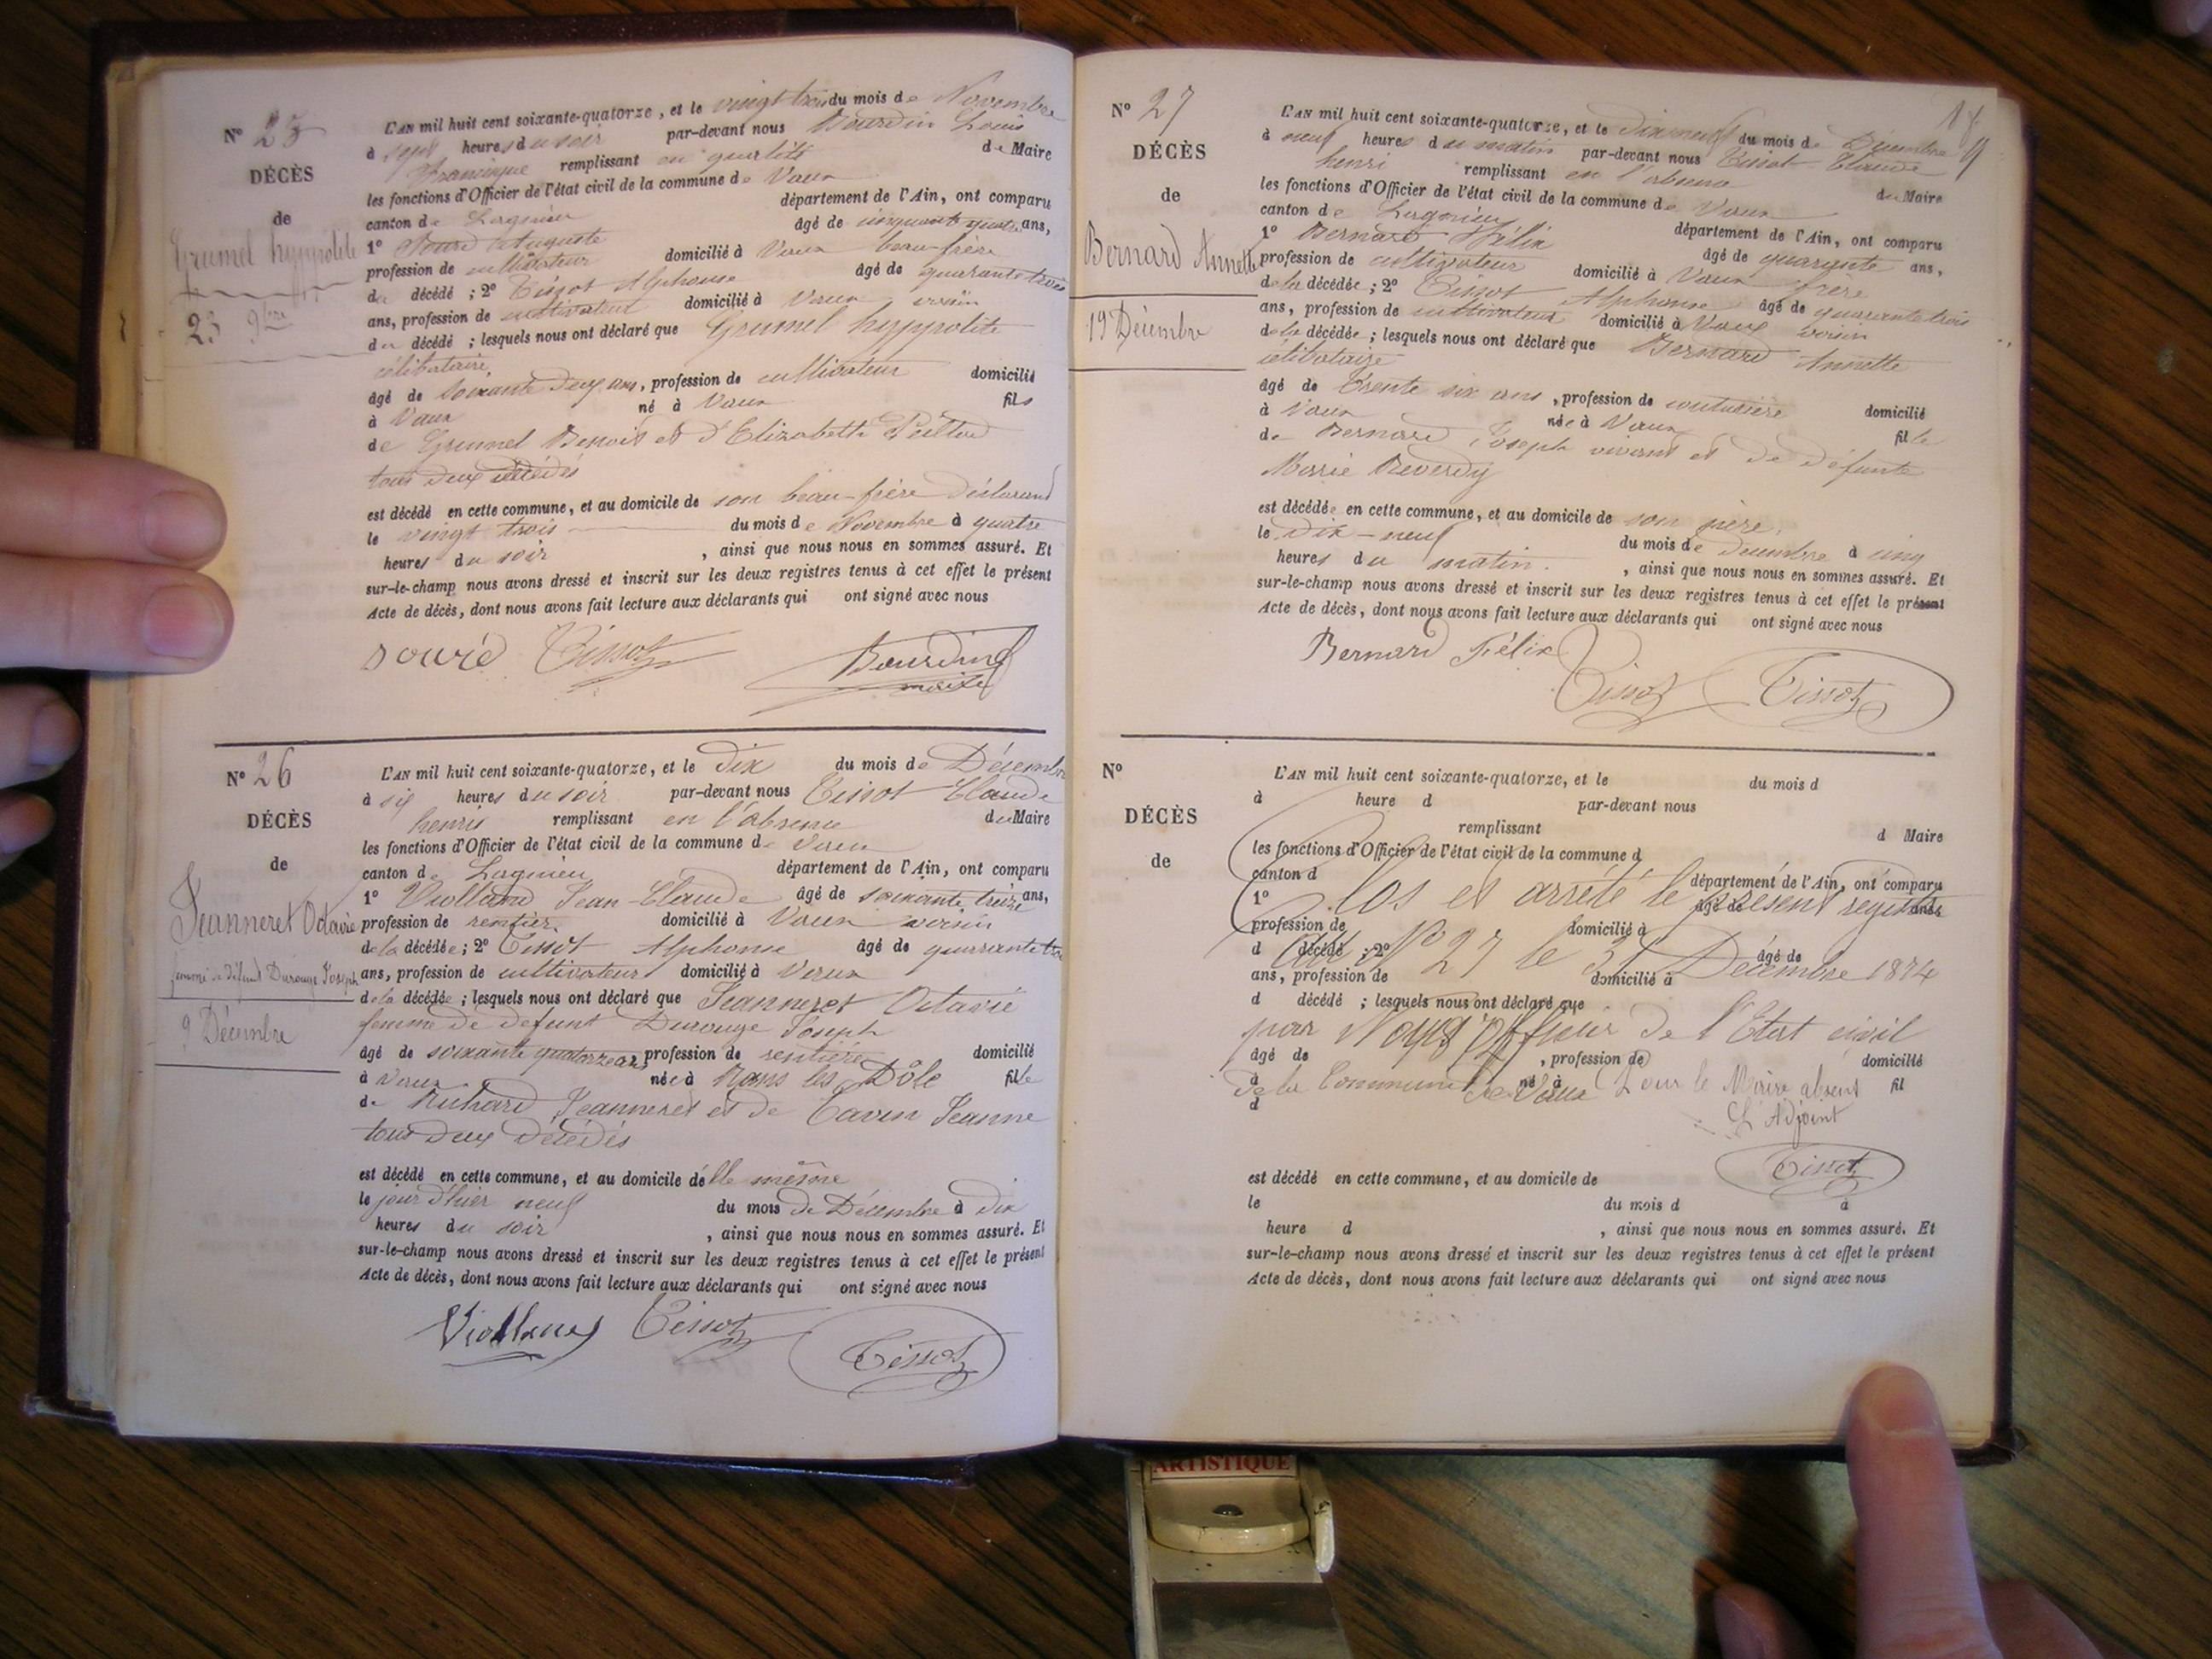 N° 25
DÉCÈS
de
Grumel hyppolite
23 9bre
L'AN mil huit cent soixante-quatorze, et le vingt trois du mois de Novembre
à sept heures du soir par-devant nous Bourdin Louis
Francisque remplissant en qualité de Maire
les fonctions d'Officier de l'état civil de la commune de Vaux
canton de Lagnieu département de l'Ain, ont comparu
1° Souré Auguste âgé de cinquante quatre ans,
profession de cultivateur domicilié à Vaux beau-frère
du décédé ; 2° Tissot Alphonse âgé de quarante trois
ans, profession de cultivateur domicilié à Vaux voisin
du décédé ; lesquels nous ont déclaré que Grumel hyppolite
célibataire
âgé de soixante deux ans, profession de cultivateur domicilié
à Vaux né à Vaux fils
de Grumel Benoit et d'Elizabeth
tous deux décédés
est décédé en cette commune, et au domicile de son beau-frère déclarant
le vingt trois du mois de Novembre à quatre
heures du soir , ainsi que nous nous en sommes assuré. Et
sur-le-champ nous avons dressé et inscrit sur les deux registres tenus à cet effet le présent
Acte de décès, dont nous avons fait lecture aux déclarants qui ont signé avec nous
Souré Tissot Bourdin
maire
N° 26
DÉCÈS
de
Jeanneret Octavie
femme de défunt Durouge Joseph
9 Décembre
L'AN mil huit cent soixante-quatorze, et le dix du mois de Décembre
à six heures du soir par-devant nous Tissot Claude
henri remplissant en l'absence du Maire
les fonctions d'Officier de l'état civil de la commune de Vaux
canton de Lagnieu département de l'Ain, ont comparu
1° Violland Jean-Claude âgé de soixante treize ans,
profession de rentier domicilié à Vaux voisin
de la décédée ; 2° Tissot Alphonse âgé de quarante trois
ans, profession de cultivateur domicilié à Vaux
de la décédée ; lesquels nous ont déclaré que Jeanneret Octavie
femme de defunt Durouge Joseph
âgé de soixante quatorze ans, profession de rentière domicilié
à Vaux née à Rans les Dôle fille
de Richard Jeanneret et de Cavin Jeanne
tous deux décédés
est décédé en cette commune, et au domicile d'elle même
le jour d'hier neuf du mois de Décembre à dix
heures du soir , ainsi que nous nous en sommes assuré. Et
sur-le-champ nous avons dressé et inscrit sur les deux registres tenus à cet effet le présent
Acte de décès, dont nous avons fait lecture aux déclarants qui ont signé avec nous
Violland Tissot
Tissot
N° 27
DÉCÈS
de
Bernard Annette
19 Décembre
L'AN mil huit cent soixante-quatorze, et le dix neuf du mois de Décembre
à neuf heures du matin par-devant nous Tissot Claude
henri remplissant en l'absence du Maire
les fonctions d'Officier de l'état civil de la commune de Vaux
canton de Lagnieu département de l'Ain, ont comparu
1° Bernard Félix âgé de quarante ans,
profession de cultivateur domicilié à Vaux frère
de la décédée ; 2° Tissot Alphonse âgé de quarante trois
ans, profession de cultivateur domicilié à Vaux voisin
de la décédée ; lesquels nous ont déclaré que Bernard Annette
célibataire
âgé de trente six ans, profession de couturière domicilié
à Vaux née à Vaux fille
de Bernard Joseph vivant et de défunte
Marie Reverdy
est décédée en cette commune, et au domicile de son père.
le dix-neuf du mois de Décembre à cinq
heures du matin. , ainsi que nous nous en sommes assuré. Et
sur-le-champ nous avons dressé et inscrit sur les deux registres tenus à cet effet le présent
Acte de décès, dont nous avons fait lecture aux déclarants qui ont signé avec nous
Bernard Félix
Tissot Tissot
N°
DÉCÈS
de
L'AN mil huit cent soixante-quatorze, et le du mois d
à heure d par-devant nous
remplissant d Maire
les fonctions d'Officier de l'état civil de la commune d
canton d département de l'Ain, ont comparu
Clos et arrêté le présent registre
1° âgé de ans,
profession de domicilié à
au N° 27 le 31 Décembre 1874
d décédé ; 2° âgé de
ans, profession de domicilié à
d décédé ; lesquels nous ont déclaré que
par Nous Officier de l'Etat civil
âgé de , profession de domicilié
de la Commune de Vaux Pour le Maire absent
à né à fil
d
L'Adjoint
Tissot
est décédé en cette commune, et au domicile de
le du mois d à
heure d , ainsi que nous nous en sommes assuré. Et
sur-le-champ nous avons dressé et inscrit sur les deux registres tenus à cet effet le présent
Acte de décès, dont nous avons fait lecture aux déclarants qui ont signé avec nous
ARTISTIQUE